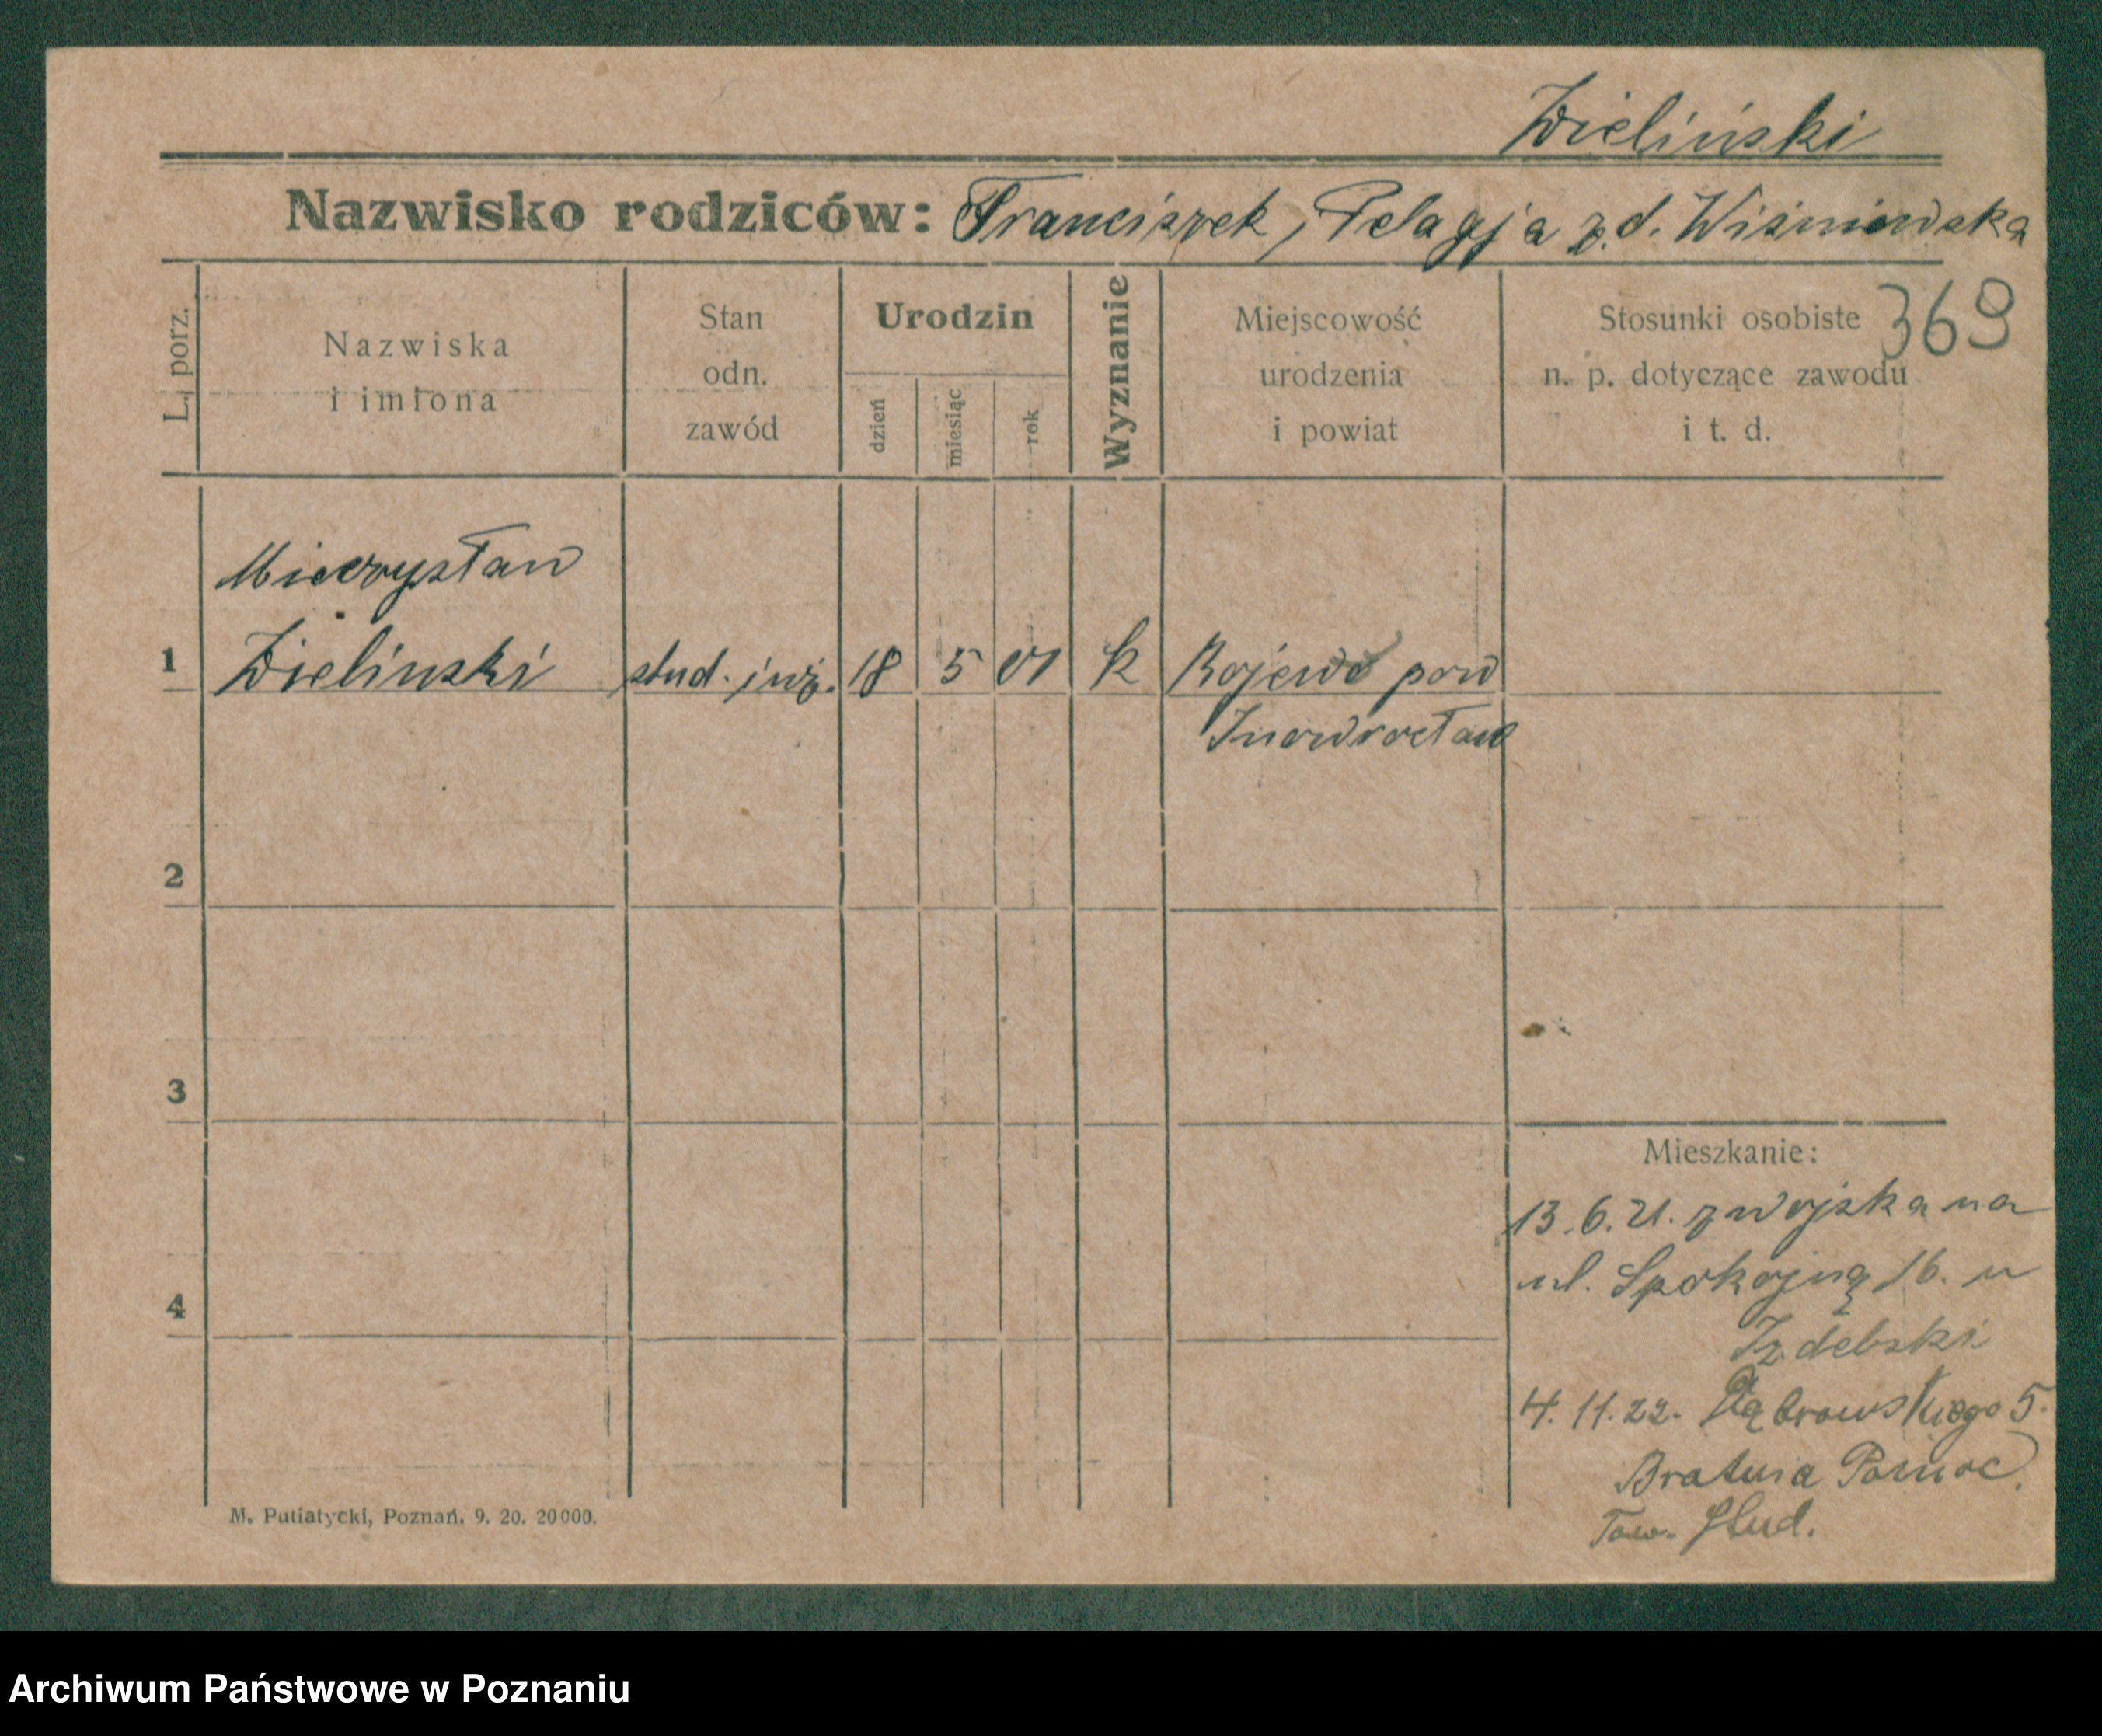 Zieliński
Nazwisko rodziców: Franciszek, Pelagja z. d. Wiśniewska
369
L. porz.
Nazwiska
i imiona
Stan
odn.
zawód
Urodzin
dzień
miesiąc
rok
Wyznanie
Miejscowość
urodzenia
i powiat
Stosunki osobiste
n. p. dotyczące zawodu
i t. d.
Mieczysław
1 Zielinski stud. inż. 18 5 01 k Rojewo pow
Inowrocław
2
3
4
Mieszkanie:
13.6.21. z wojska na
ul. Spokojną 16. u
Izdebski
4.11.22. Dąbrowskiego 5.
Bratnia Pomoc.
Tow. Stud.
M. Putiatycki, Poznań. 9. 20. 20000.
Archiwum Państwowe w Poznaniu